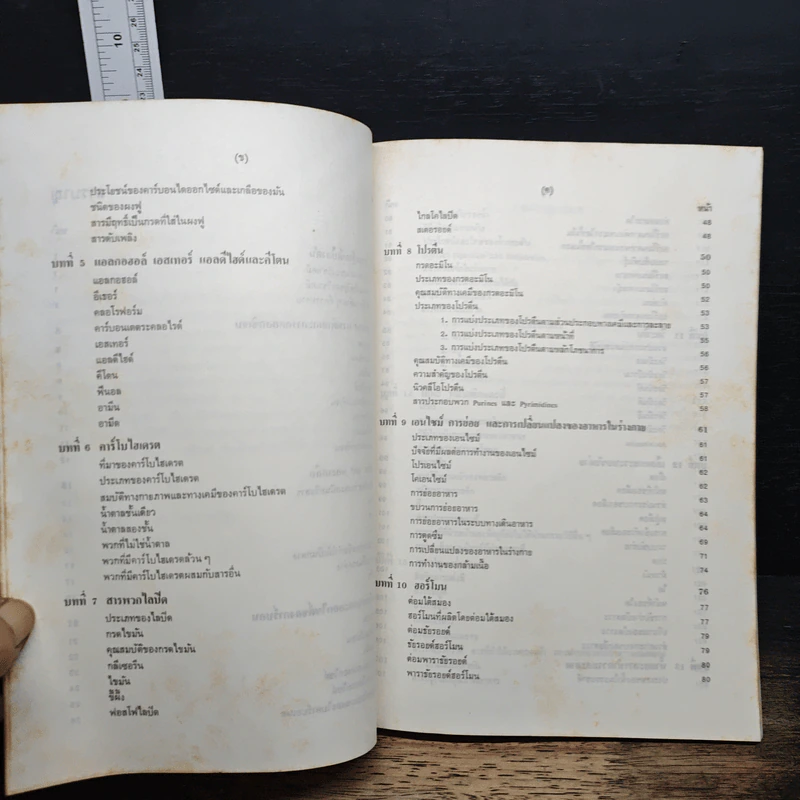 (ข)
ประโยชน์ของคาร์บอนไดออกไซด์และเกลือของมัน
ชนิดของผงฟู
สารมีฤทธิ์เป็นกรดที่ใส่ในผงฟู
สารดับเพลิง
บทที่ 5 แอลกอฮอล์ เอสเทอร์ แอลดีไฮด์และคีโตน
แอลกอฮอล์
อีเธอร์
คลอโรฟอร์ม
คาร์บอนเตตระคลอไรด์
เอสเทอร์
แอลดีไฮด์
คีโตน
ฟีนอล
อามีน
อามีด
บทที่ 6 คาร์โบไฮเดรต
ที่มาของคาร์โบไฮเดรต
ประเภทของคาร์โบไฮเดรต
สมบัติทางกายภาพและทางเคมีของคาร์โบไฮเดรต
น้ำตาลชั้นเดียว
น้ำตาลสองชั้น
พวกที่ไม่ใช่น้ำตาล
พวกที่มีคาร์โบไฮเดรตล้วน ๆ
พวกที่มีคาร์โบไฮเดรตผสมกับสารอื่น
บทที่ 7 สารพวกไลปิด
ประเภทของไลปิด
กรดไขมัน
คุณสมบัติของกรดไขมัน
กลีเซอรีน
ไขมัน
ขี้ผึ้ง
ฟอสโฟไลปิด
(ค)
หน้า
ไกลโคไลปิด 48
สเตอรอยด์ 48
บทที่ 8 โปรตีน 50
กรดอะมิโน 50
ประเภทของกรดอะมิโน 50
คุณสมบัติทางเคมีของกรดอะมิโน 52
ประเภทของโปรตีน 53
1. การแบ่งประเภทของโปรตีนตามส่วนประกอบทางเคมีและการละลาย 53
2. การแบ่งประเภทของโปรตีนตามหน้าที่ 55
3. การแบ่งประเภทของโปรตีนตามหลักโภชนาการ 56
คุณสมบัติทางเคมีของโปรตีน 56
ความสำคัญของโปรตีน 57
นิวคลีโอโปรตีน 57
สารประกอบพวก Purines และ Pyrimidines 58
บทที่ 9 เอนไซม์ การย่อย และการเปลี่ยนแปลงของอาหารในร่างกาย 61
ประเภทของเอนไซม์ 61
ปัจจัยที่มีผลต่อการทำงานของเอนไซม์ 62
โปรเอนไซม์ 62
โคเอนไซม์ 62
การย่อยอาหาร 63
ขบวนการย่อยอาหาร 64
การย่อยอาหารในระบบทางเดินอาหาร 64
การดูดซึม 69
การเปลี่ยนแปลงของอาหารในร่างกาย 71
การทำงานของกล้ามเนื้อ 74
บทที่ 10 ฮอร์โมน 76
ต่อมใต้สมอง 77
ฮอร์โมนที่ผลิตโดยต่อมใต้สมอง 77
ต่อมธัยรอยด์ 79
ธัยรอยด์ฮอร์โมน 79
ต่อมพาราธัยรอยด์ 80
พาราธัยรอยด์ฮอร์โมน 80
10
26
25
24
23